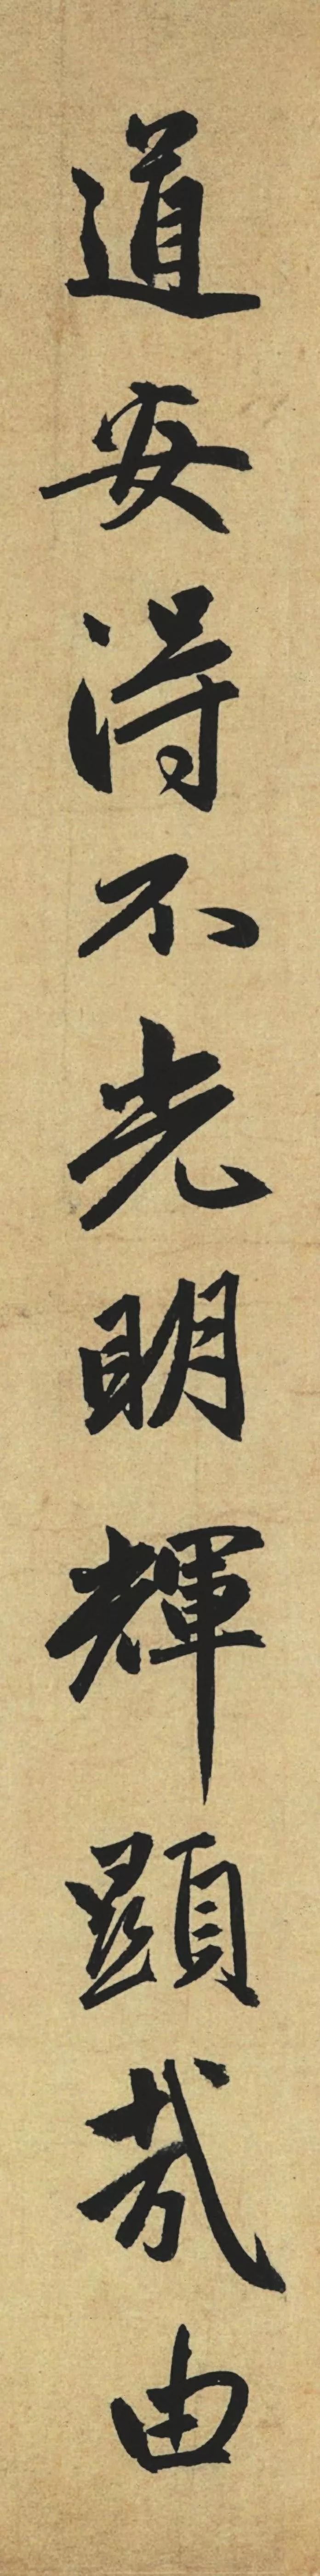 道安得不光明輝顯哉由